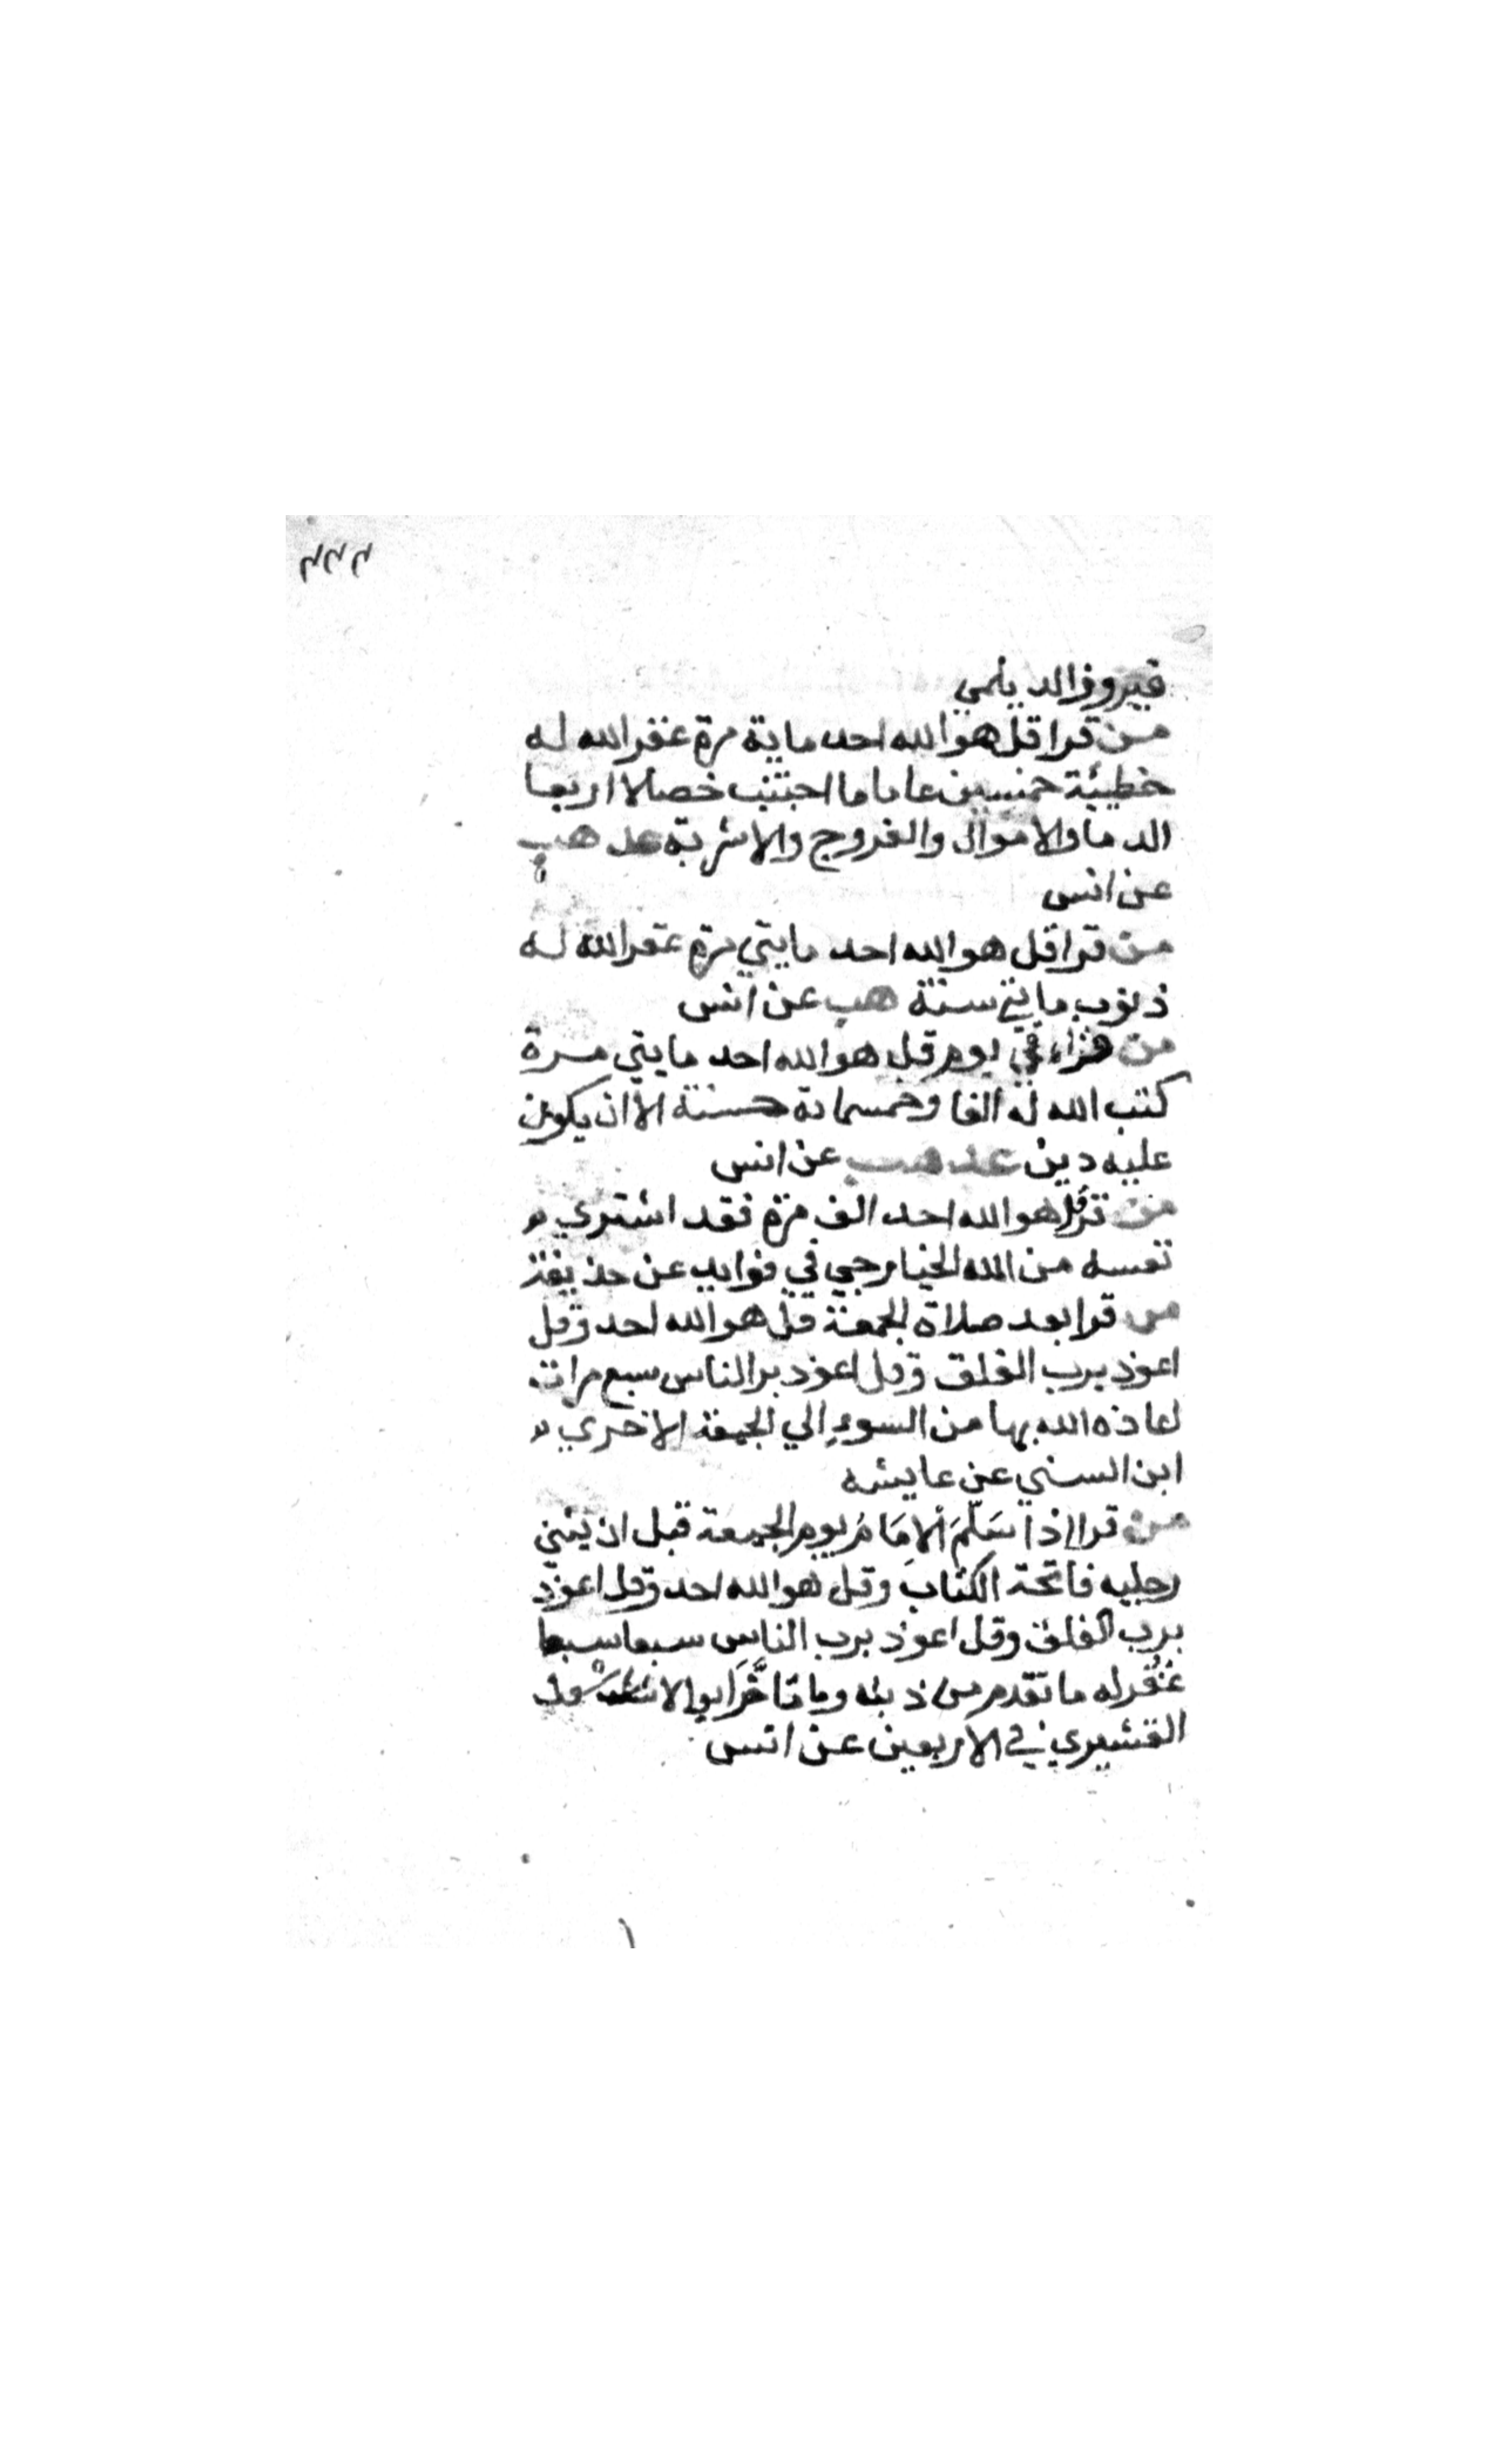 ٢٢٢
فيروز الديلمي
من قرا قل هو الله احد ماية مرة غفر الله له
خطيئة خمسين عاما ما اجتنب خصالا اربعا
الدما والاموال والفروج والاشربة عد هب
عن انس
من قرا قل هو الله احد مايتي مرة غفر الله له
ذنوب مايتي سنة هب عن انس
من قراء في يوم قل هو الله احد مايتي مرة
كتب الله له الفا وخمسماية حسنة الا ان يكون
عليه دين عد هب عن انس
من قرا قل هو الله احد الف مرة فقد اشتري
نفسه من الله الخيارجي في فوايد عن حذيفة
من قرا بعد صلاة الجمعة قل هو الله احد وقل
اعوذ برب الفلق وقل اعوذ برالناس سبع مرات
اعاذه الله بها من السوء إلي الجمعة الاخري
ابن السني عن عايشه
من قرا اذا سَلَّمَ الامَامُ يوم الجمعة قبل ان يثني
رجليه فاتحة الكتاب وقل هو الله احد وقل اعوذ
برب الفلق وقل اعوذ برب الناس سبعا سبعا
غُفر له ما تقدم من ذنبه وما تاخَّرَ ابو الاسعد
القشيري في الاربعين عن انس